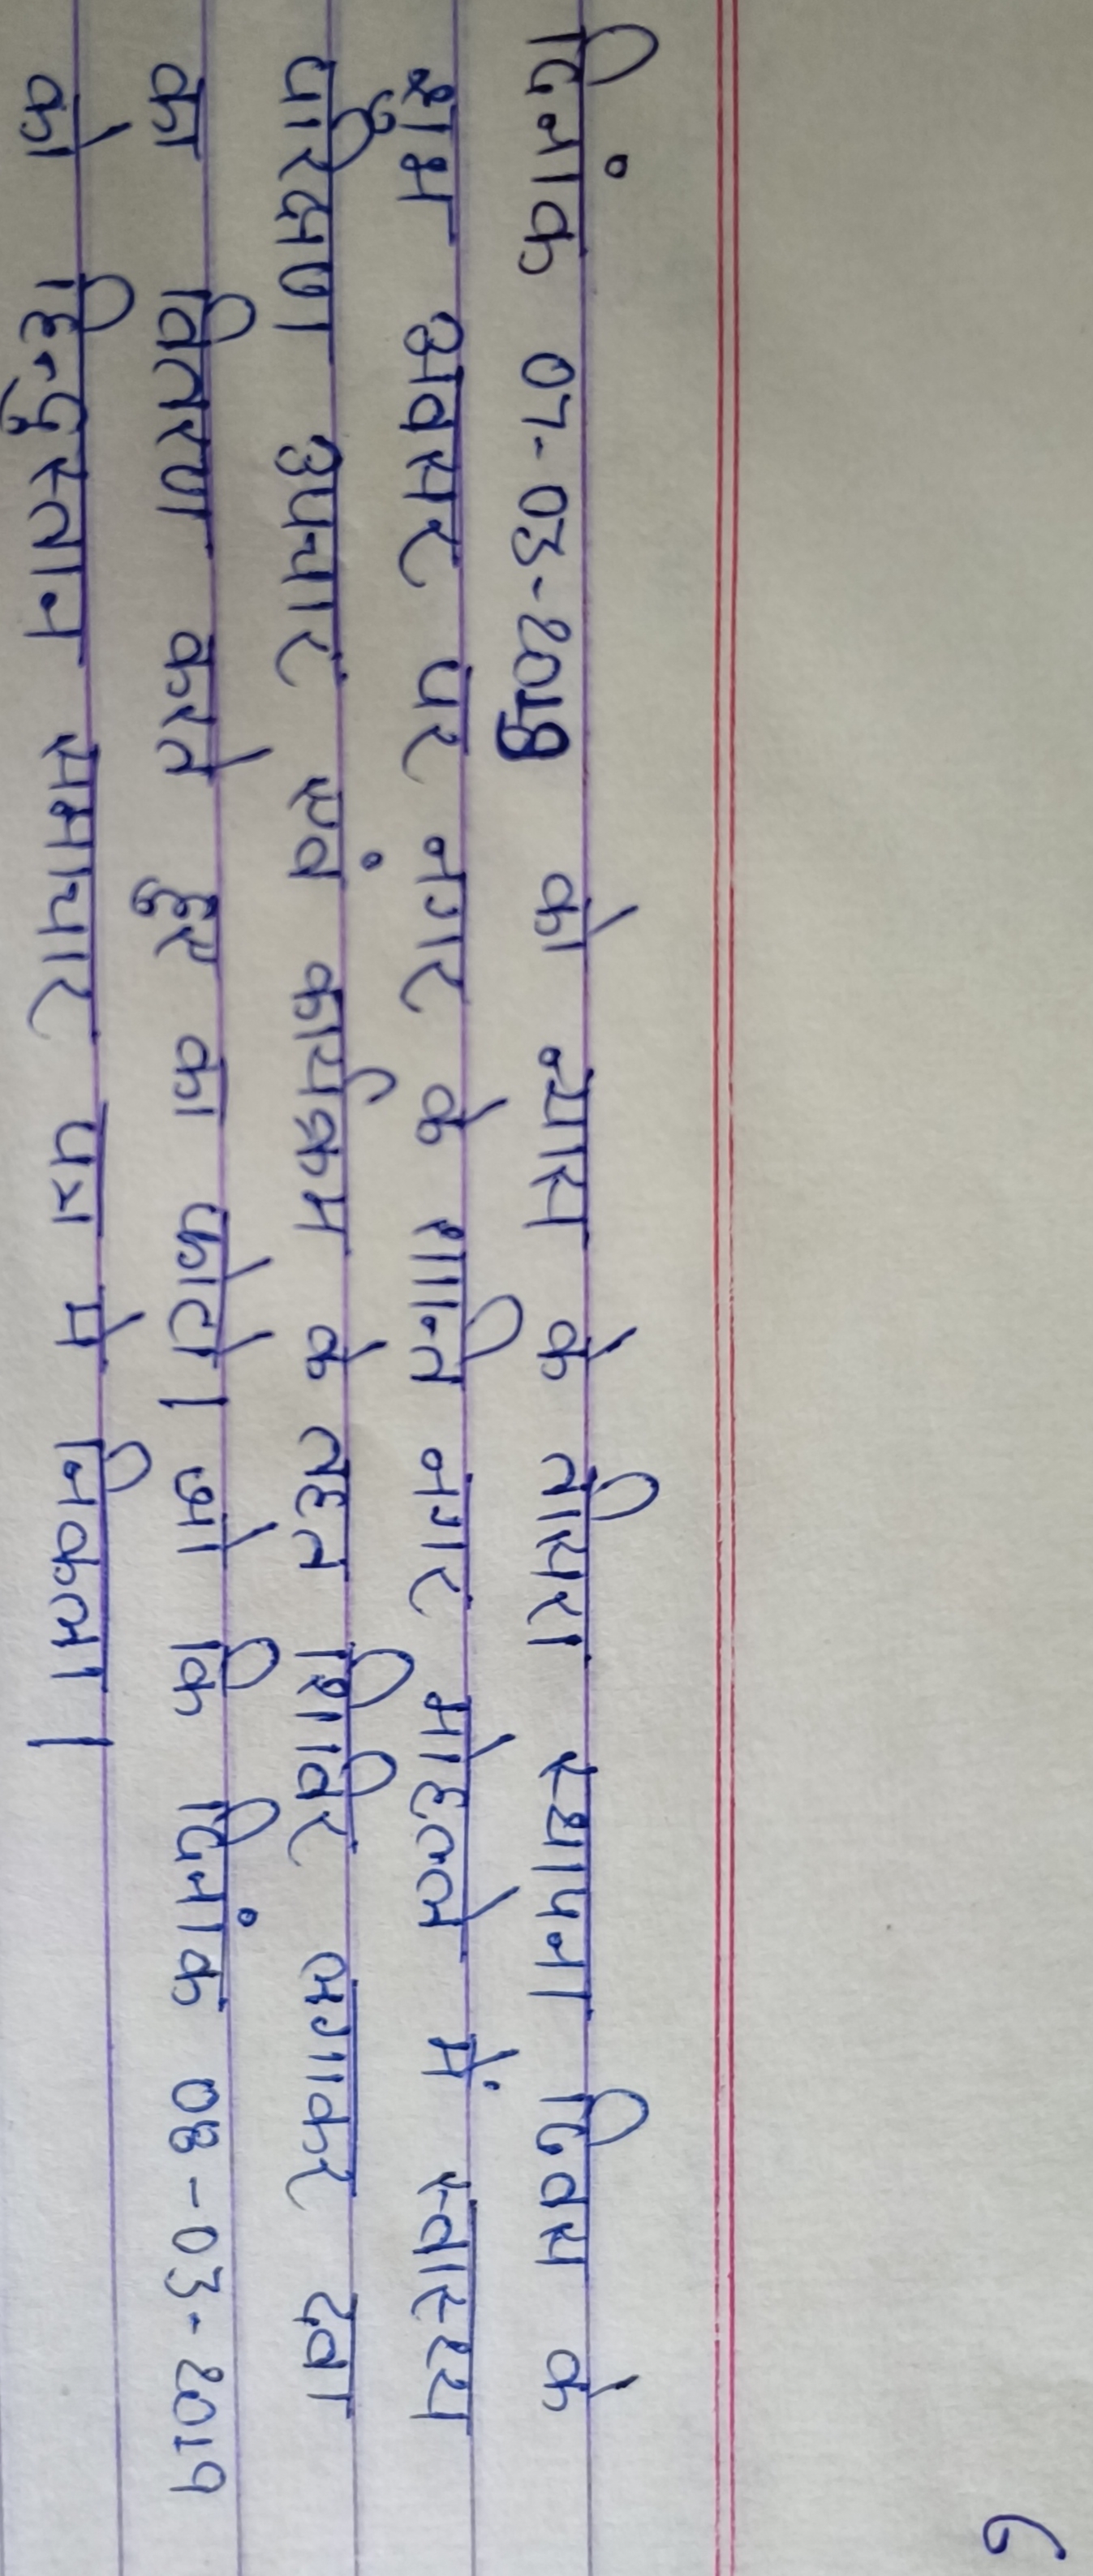 6
दिनांक 07-03-2019 को न्यास के तीसरा स्थापना दिवस के
शुभ अवसर पर नगर के शान्ति नगर मोहल्ले में स्वास्थ्य
परिक्षण उपचार एवं कार्यक्रम के तहत शिविर लगाकर दवा
का वितरण करते हुए का फोटो। जो कि दिनांक 08-03-2019
को हिन्दुस्तान समाचार पत्र मे निकला।